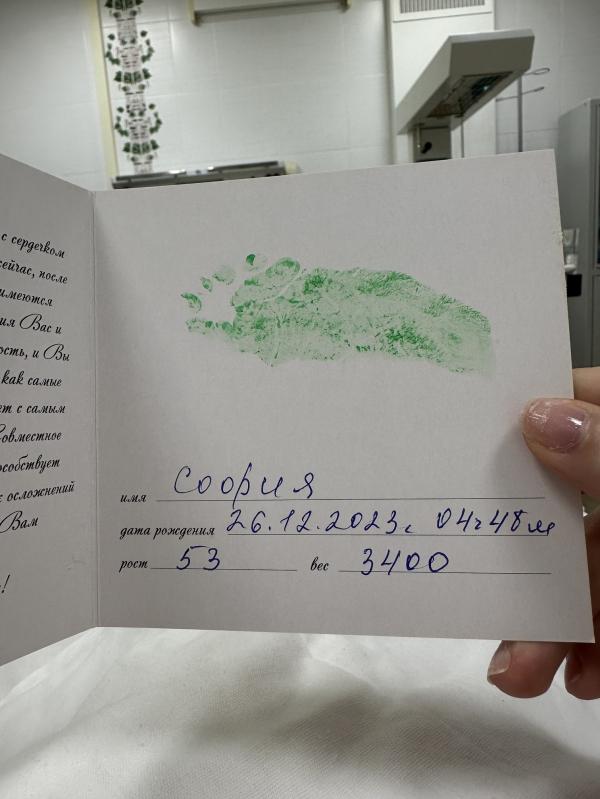 с сердечком
сейчас, после
имеются
ия Вас и
ость, и Вы
как самые
ет с самым
Совместное
особствует
х осложнений
Вам
!
имя София
дата рождения 26.12.2023г 04ч48м
рост 53 вес 3400